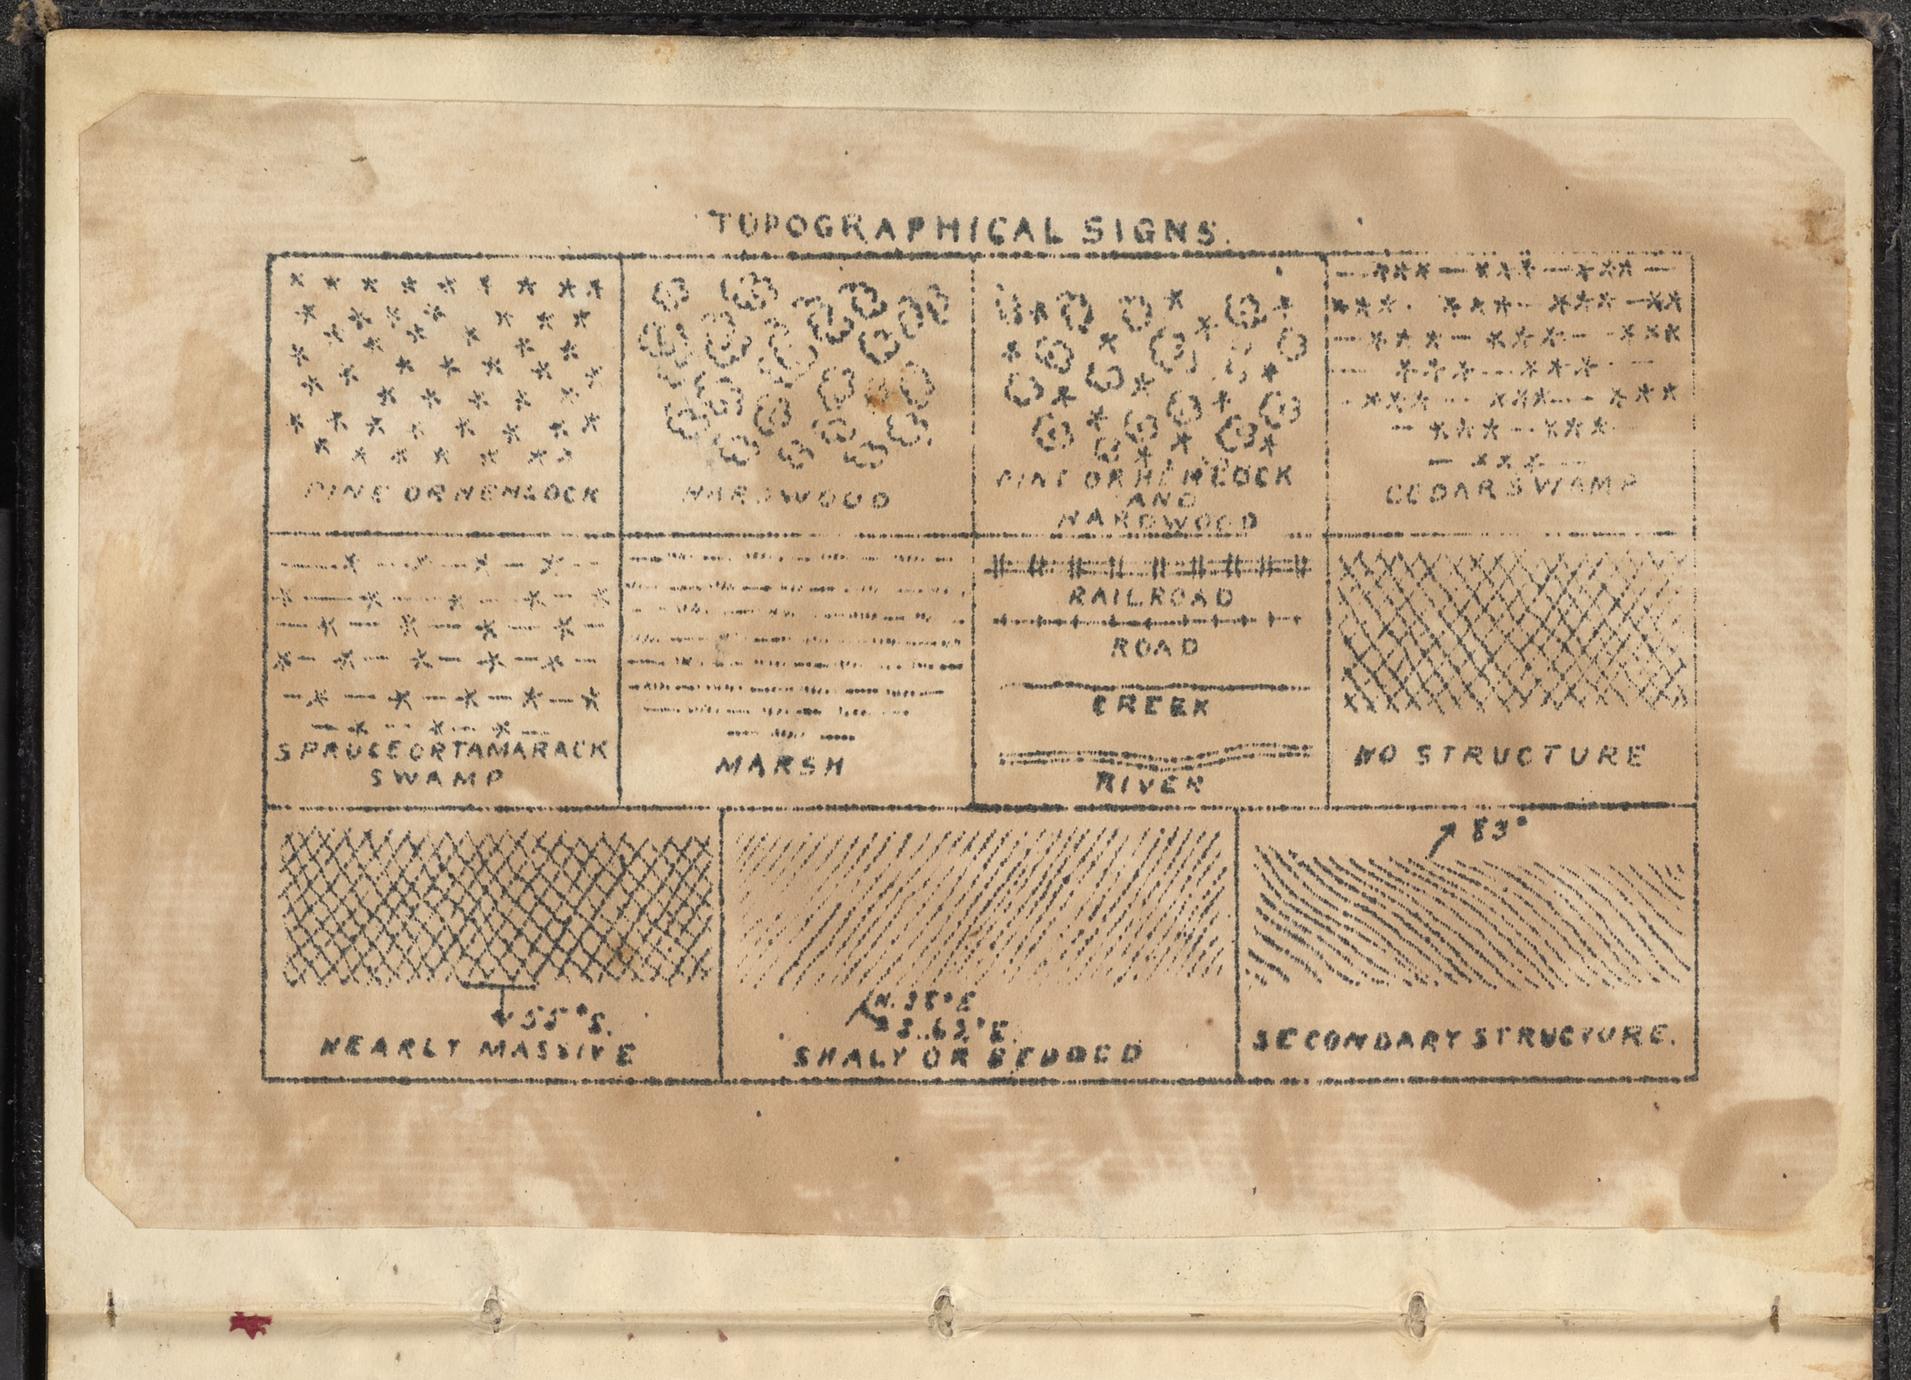 TOPOGRAPHICAL SIGNS.
PINE OR HEMLOCK
HARDWOOD
PINE OR HEMLOCK
AND
HARDWOOD
CEDAR SWAMP
SPRUCE OR TAMARACK
SWAMP
MARSH
RAILROAD
ROAD
CREEK
RIVER
NO STRUCTURE
55° S.
NEARLY MASSIVE
SHALY OR BEDDED
83°
SECONDARY STRUCTURE.